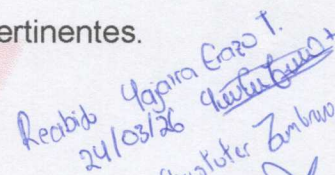 ertinentes.
Recibido Yajaira Erazo T.
24/03/26
Zambrano